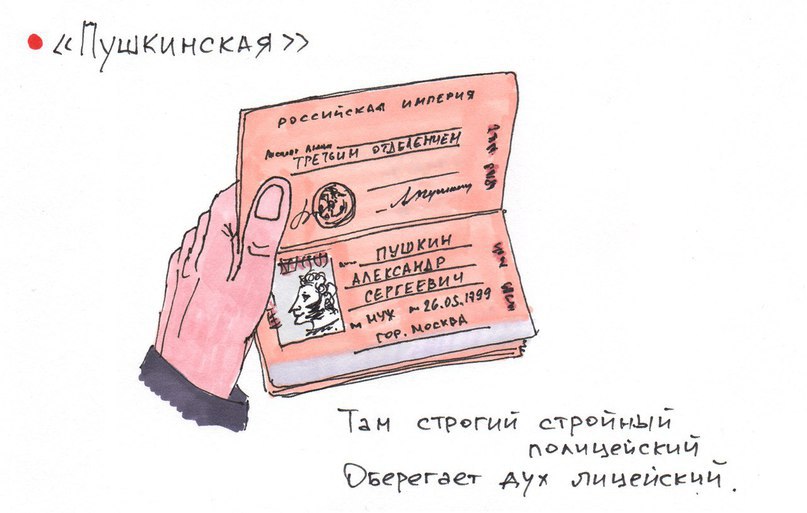 «Пушкинская»
РОССИЙСКАЯ ИМПЕРИЯ
ТРЕТЬИМ ОТДЕЛЕНИЕМ
ПУШКИН
АЛЕКСАНДР
СЕРГЕЕВИЧ
МУЖ 26.05.1799
ГОР. МОСКВА
Там строгий стройный
полицейский
Оберегает дух лицейский.